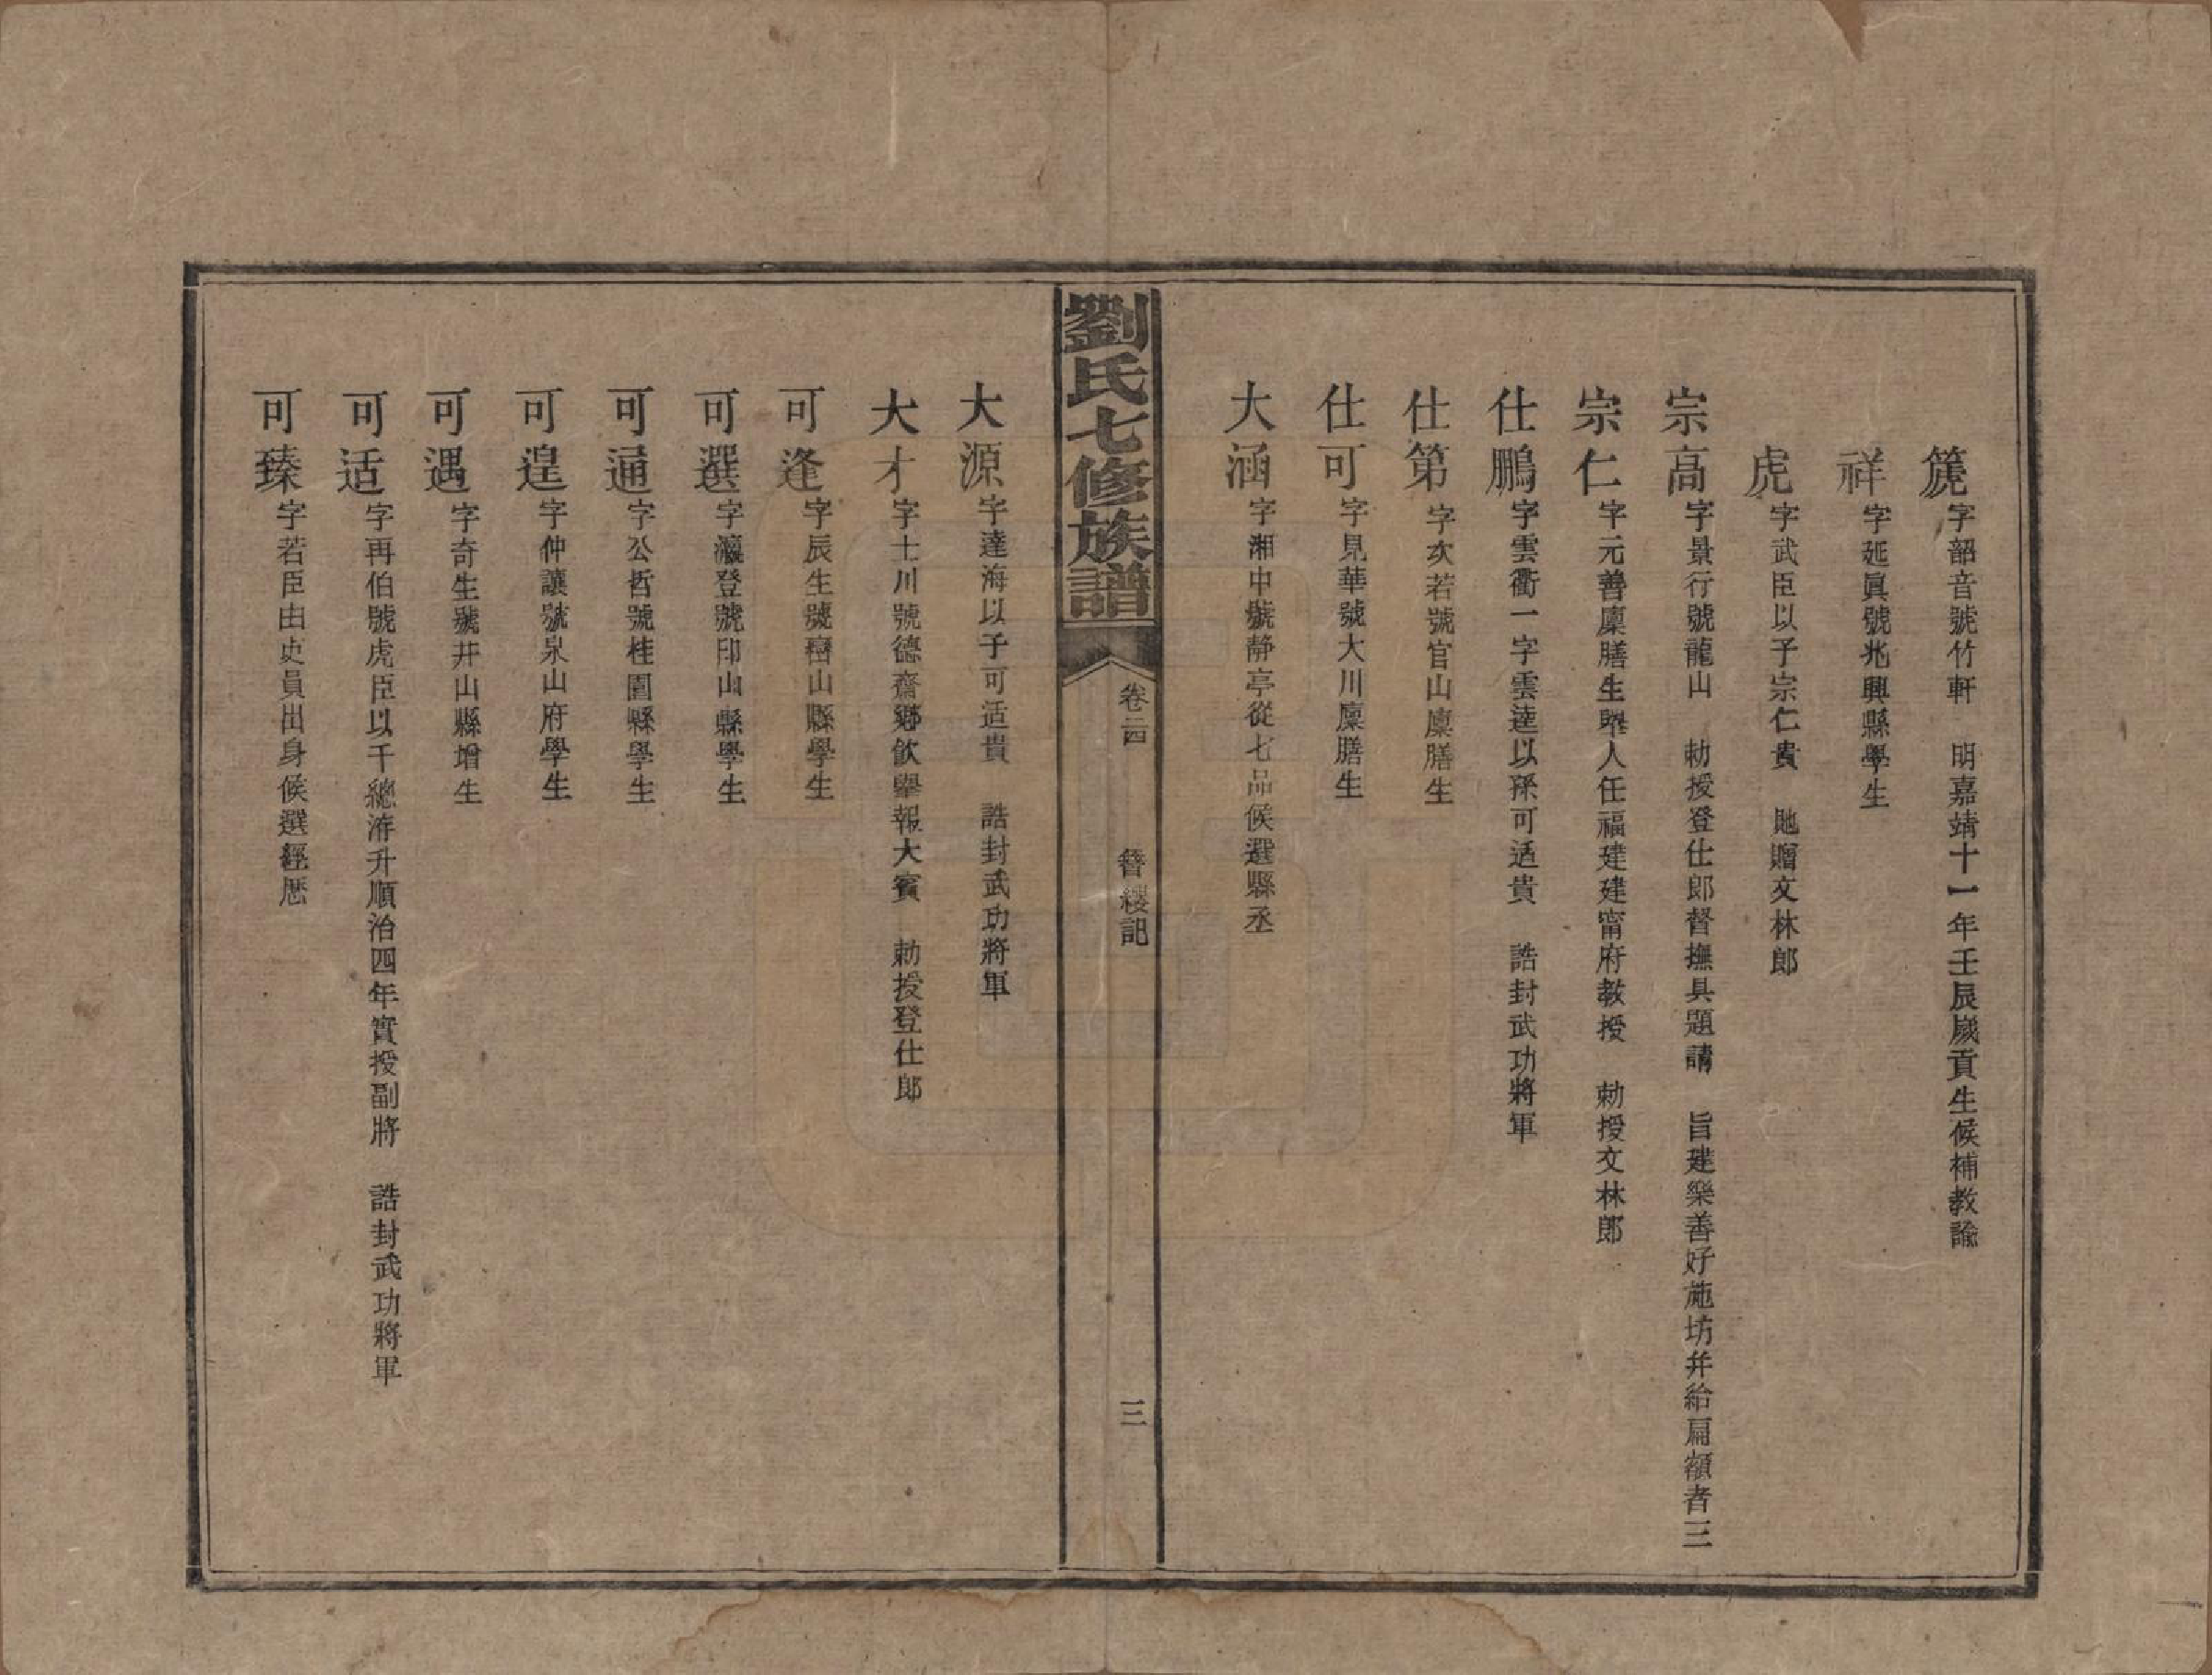 箎字韶音號竹軒　明嘉靖十一年壬辰歲貢生候補教諭
祥字延眞號兆興縣學生
虎字武臣以子宗仁貴　貤贈文林郎
宗高字景行號龍山　勅授登仕郎督撫具題請　旨建樂善好施坊幷給扁額者三
宗仁字元善廩膳生舉人任福建建甯府教授　勅授文林郎
仕鵬字雲衢一字雲逵以孫可适貴　誥封武功將軍
仕第字次若號官山廩膳生
仕可字見華號大川廩膳生
大涵字湘中號靜亭從七品候選縣丞
劉氏七修族譜　卷二四　簪纓記　三
大源字達海以子可适貴　誥封武功將軍
大才字士川號德齋鄉飲舉報大賓　勅授登仕郎
可逢字辰生號嵛山縣學生
可選字瀛登號印山縣學生
可通字公哲號桂園縣學生
可遑字仲讓號泉山府學生
可遇字奇生號井山縣增生
可适字再伯號虎臣以千總洊升順治四年實授副將　誥封武功將軍
可臻字若臣由吏員出身候選經歷